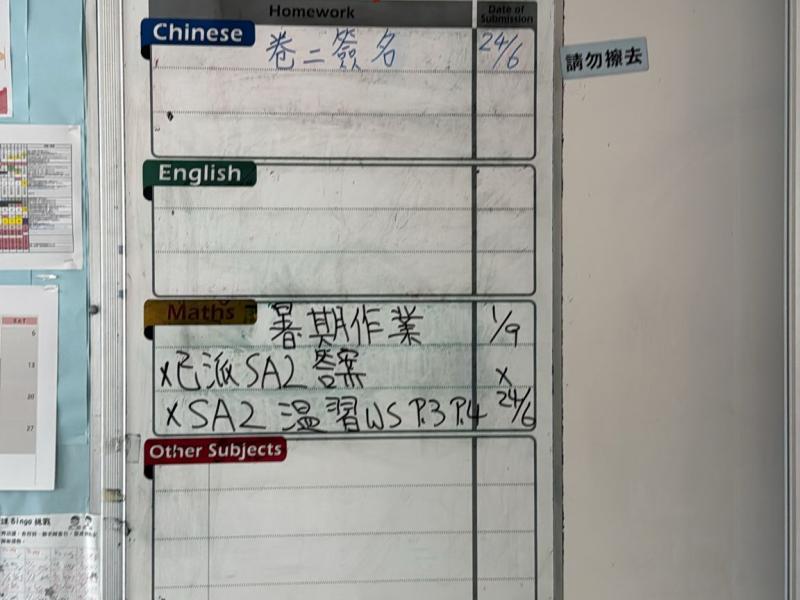 Homework
Date of Submission
Chinese
卷二簽名 24/6
請勿擦去
English
Maths
暑期作業 1/9
x已派SA2 答案 x
xSA2 溫習WS P.3 P.4 24/6
Other Subjects
SAT
6
13
20
27
Bingo 挑戰